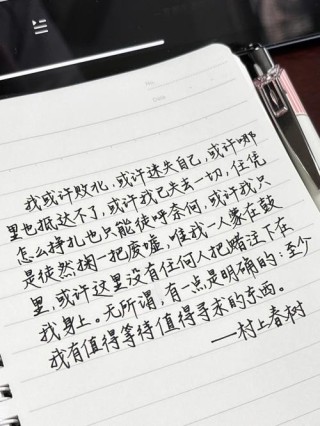 我或许败北，或许迷失自己，或许哪
里也抵达不了，或许我已失去一切，任凭
怎么挣扎也只能徒呼奈何，或许我只
是徒然掬一把废墟，唯我一人蒙在鼓
里，或许这里没有任何人把赌注下在
我身上。无所谓，有一点是明确的：至少
我有值得等待值得寻求的东西。
——村上春树